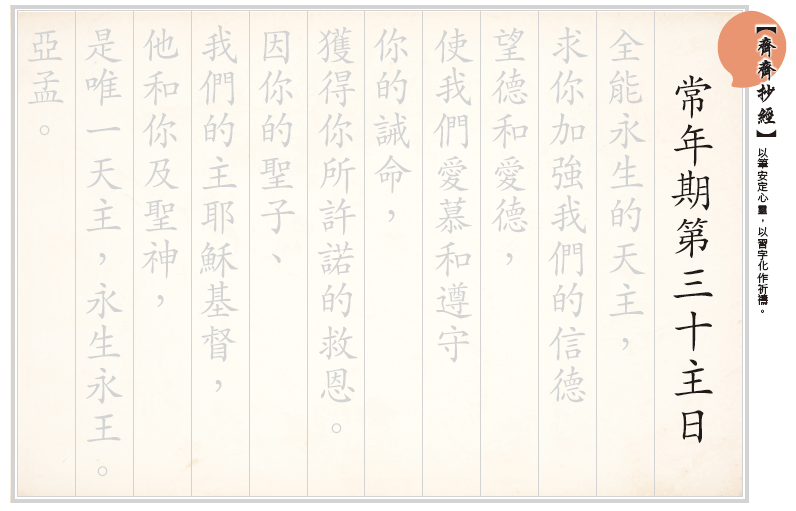 【齊齊抄經】以筆安定心靈，以習字化作祈禱。
常年期第三十主日
全能永生的天主，
求你加強我們的信德
望德和愛德，
使我們愛慕和遵守
你的誡命，
獲得你所許諾的救恩。
因你的聖子、
我們的主耶穌基督，
他和你及聖神，
是唯一天主，永生永王。
亞孟。